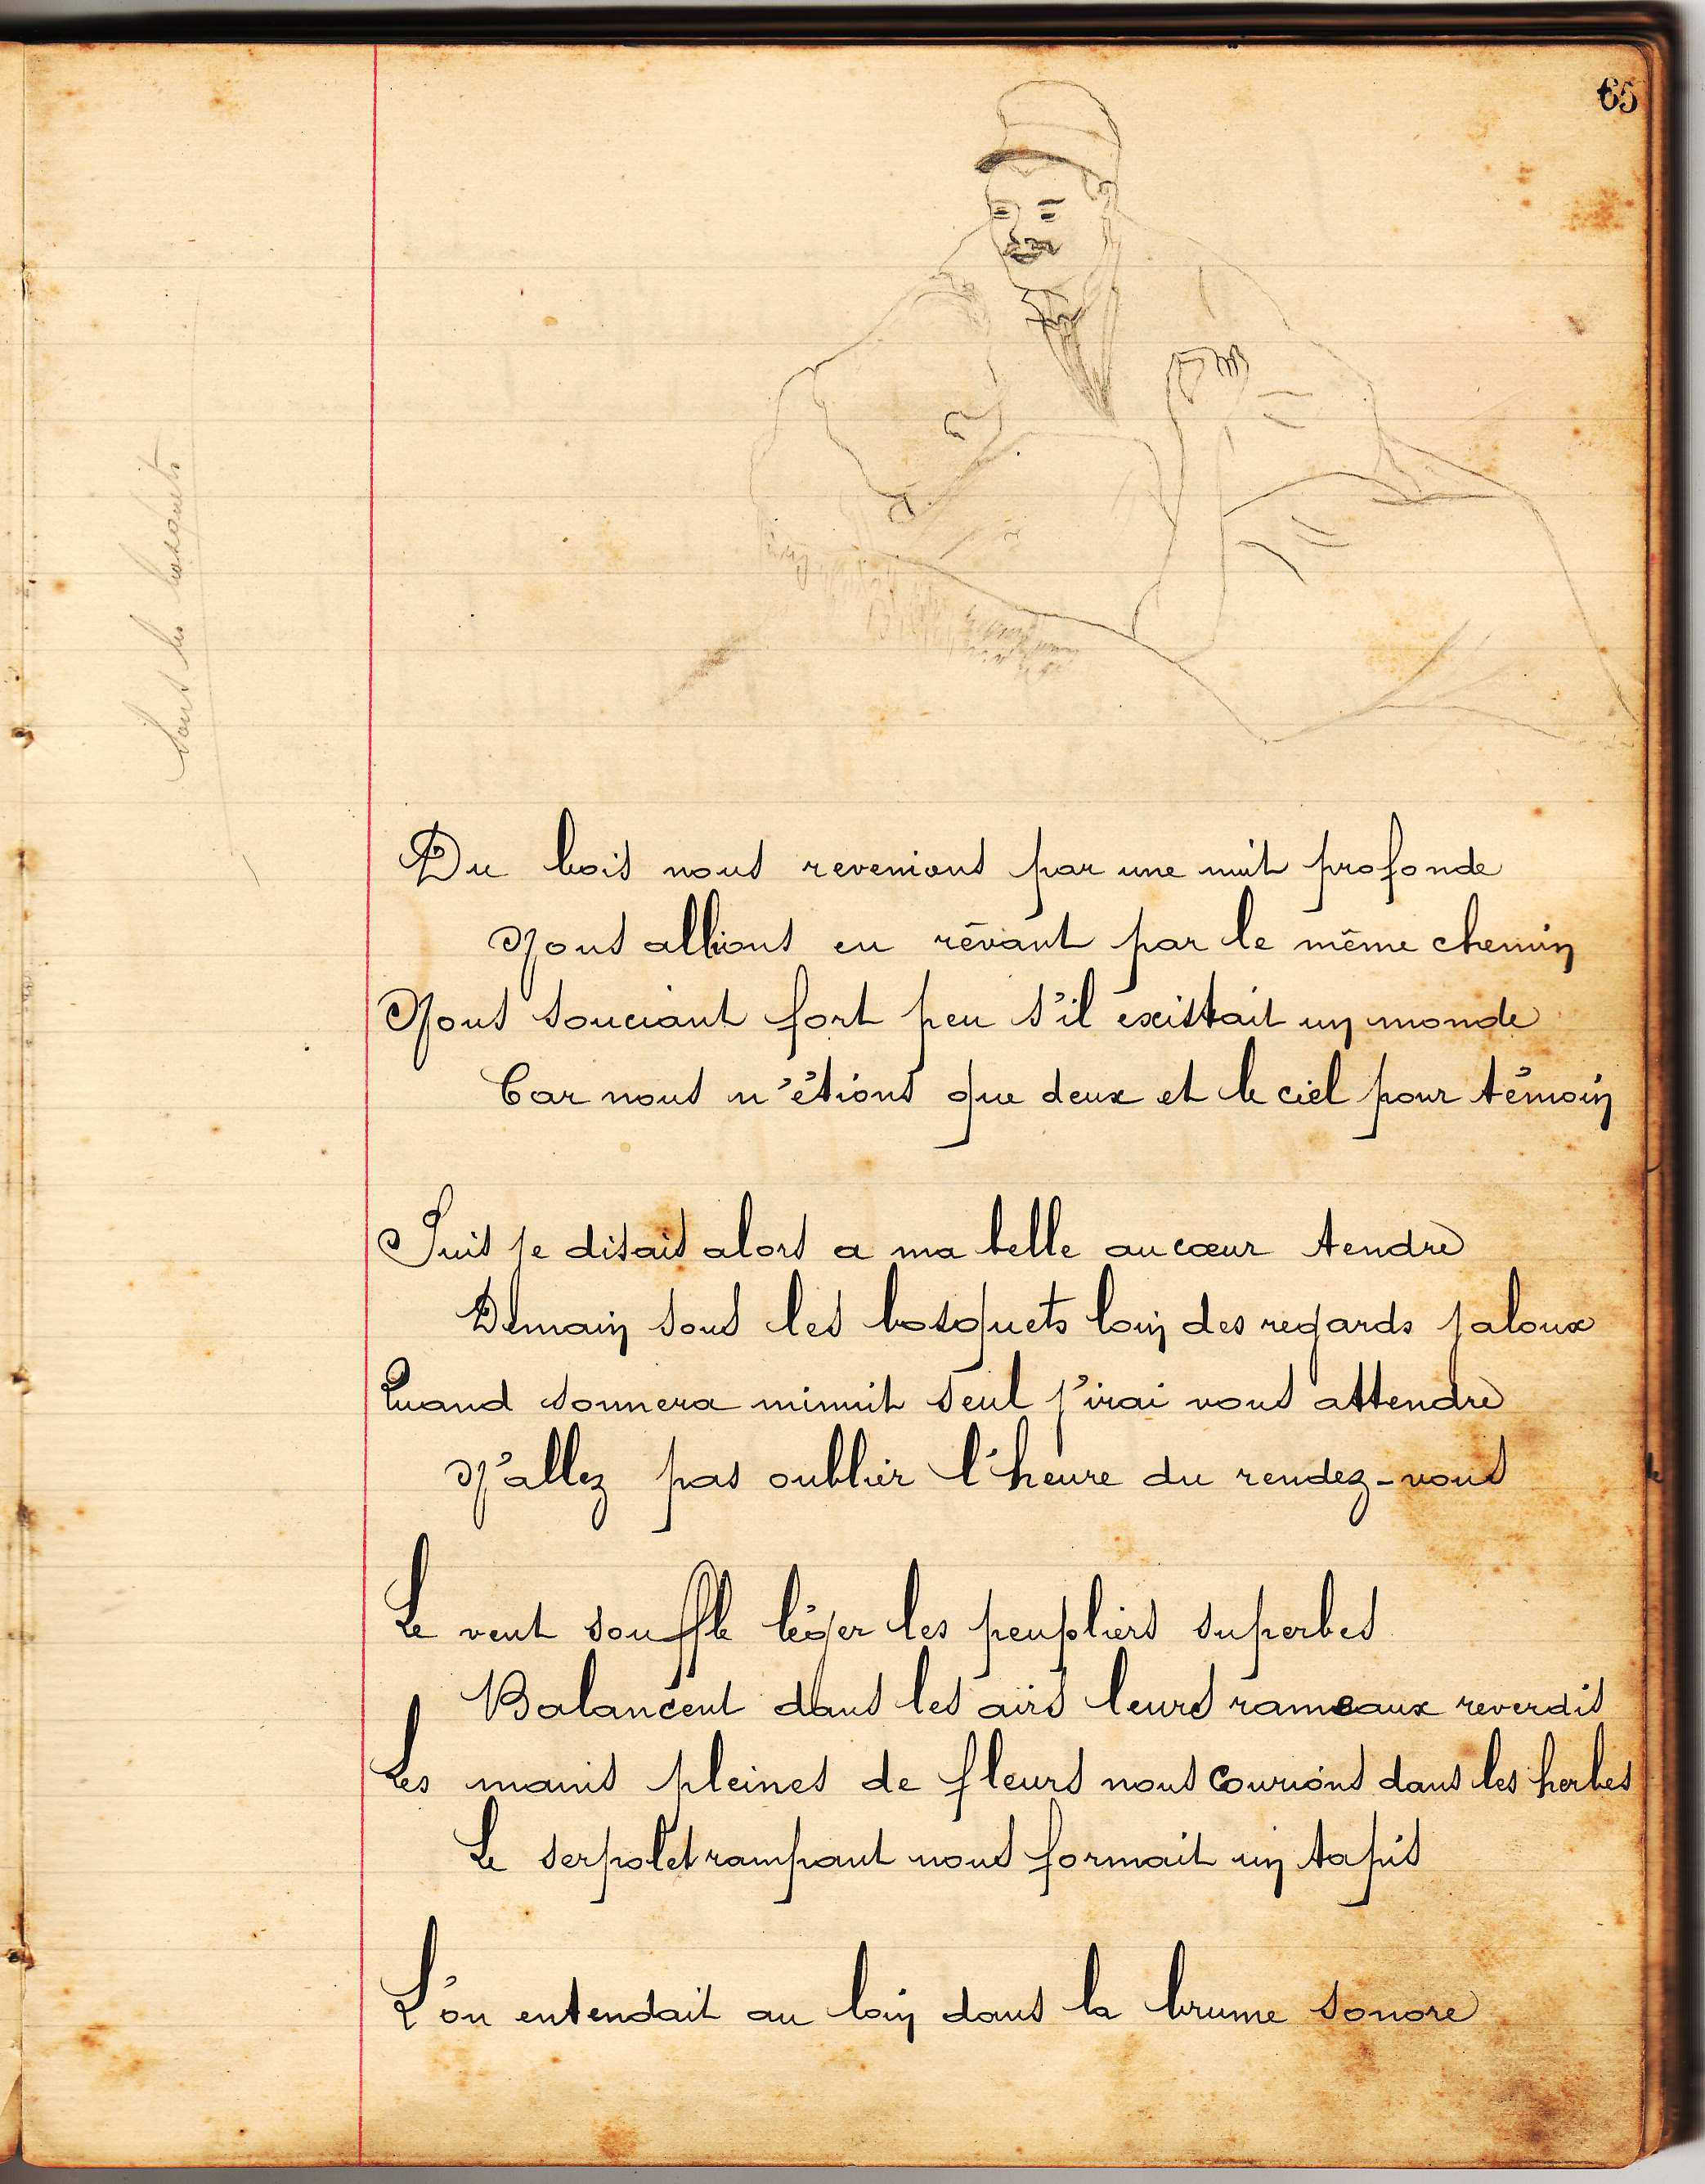 65
Sous les bosquets
Du bois nous revenions par une nuit profonde
Nous allions en rêvant par le même chemin
Nous souciant fort peu s'il existait un monde
Car nous n'étions que deux et le ciel pour témoin
Puis je disais alors a ma belle au cœur tendre
Demain sous les bosquets loin des regards jaloux
Quand sonnera minuit seul j'irai vous attendre
N'allez pas oublier l'heure du rendez-vous
Le vent souffle léger les peupliers superbes
Balancent dans les airs leurs rameaux reverdis
Les mains pleines de fleurs nous courions dans les herbes
Le serpolet rampant nous formait un tapis
L'on entendait au loin dans la brume sonore